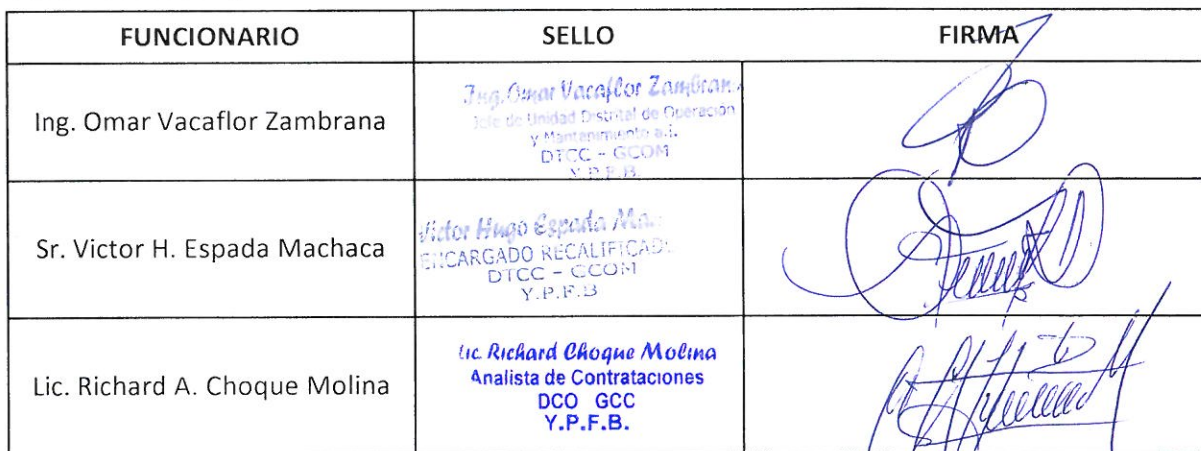 FUNCIONARIO SELLO FIRMA
Ing. Omar Vacaflor Zambrana
Ing. Omar Vacaflor Zambran
Jefe de Unidad Distrital de Operación
y Mantenimiento a.i.
DTCC - GCOM
Y.P.F.B.
Sr. Victor H. Espada Machaca
Victor Hugo Espada Ma
ENCARGADO RECALIFICAD
DTCC - GCOM
Y.P.F.B
Lic. Richard A. Choque Molina
Lic. Richard Choque Molina
Analista de Contrataciones
DCO GCC
Y.P.F.B.